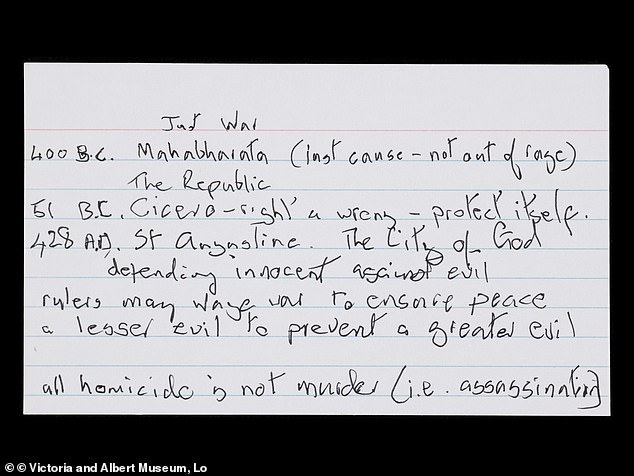 Just War
400 B.C. Mahabharata (just cause - not out of rage)
The Republic
51 B.C. Cicero - right a wrong - protect itself.
428 A.D. St Augustine. The City of God
defending innocent against evil
rulers may wage war to ensure peace
a lesser evil to prevent a greater evil
all homicide is not murder (i.e. assassination)
© © Victoria and Albert Museum, Lo